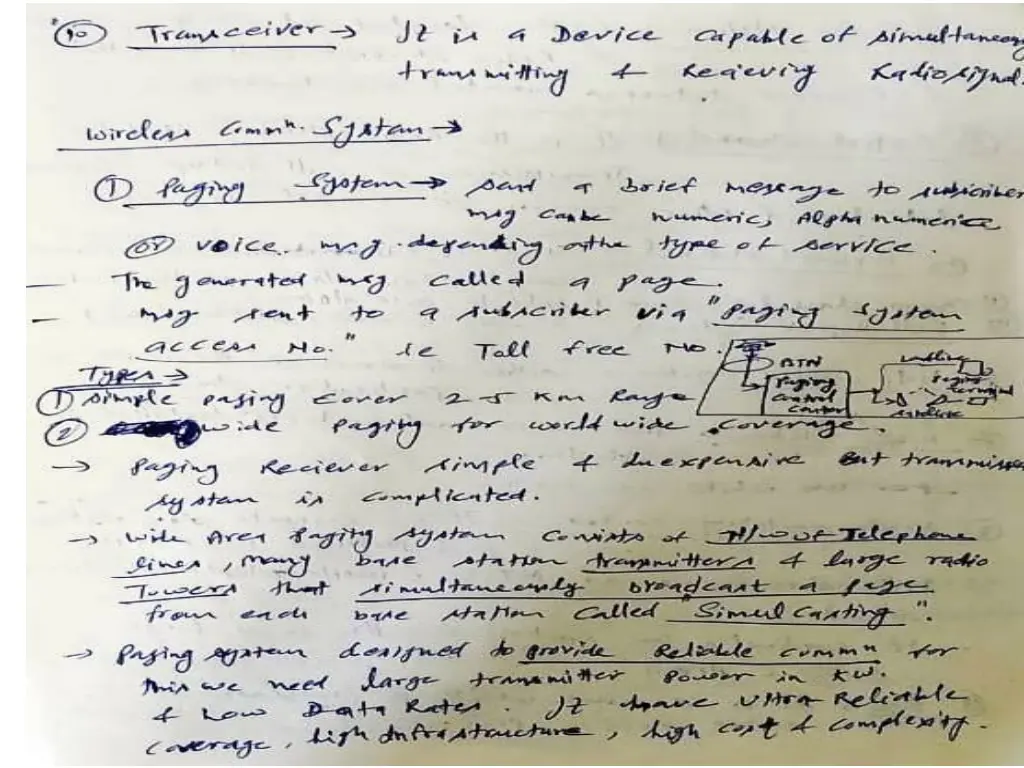 (10) Transceiver → It is a Device capable of simultaneous
transmitting & Recieving Radio signal.
Wireless Commn. System →
① Paging System → send a Brief message to subscriber
msg can be numeric, Alpha numerice
(or) voice. msg. depending on the type of service.
The generated msg called a page.
msg sent to a subscriber via "paging system
access No." ie Toll free No.
PSTN
Paging
Control
Center
landline
Paging
terminal
satellite
Types →
① simple paging cover 2-5 Km Range
② wide paging for world wide coverage.
→ Paging Reciever simple & Inexpensive But transmission
system is complicated.
→ Wide Area Paging system consists of N/w of Telephone
lines, many base station transmitters & large radio
Towers that simultaneously broadcast a page
from each base station called "Simul Casting".
→ Paging system designed to provide Reliable commn for
this we need large transmitter power in KW.
& Low Data Rates. It have Ultra Reliable
coverage, high Infrastructure, high cost & complexity.